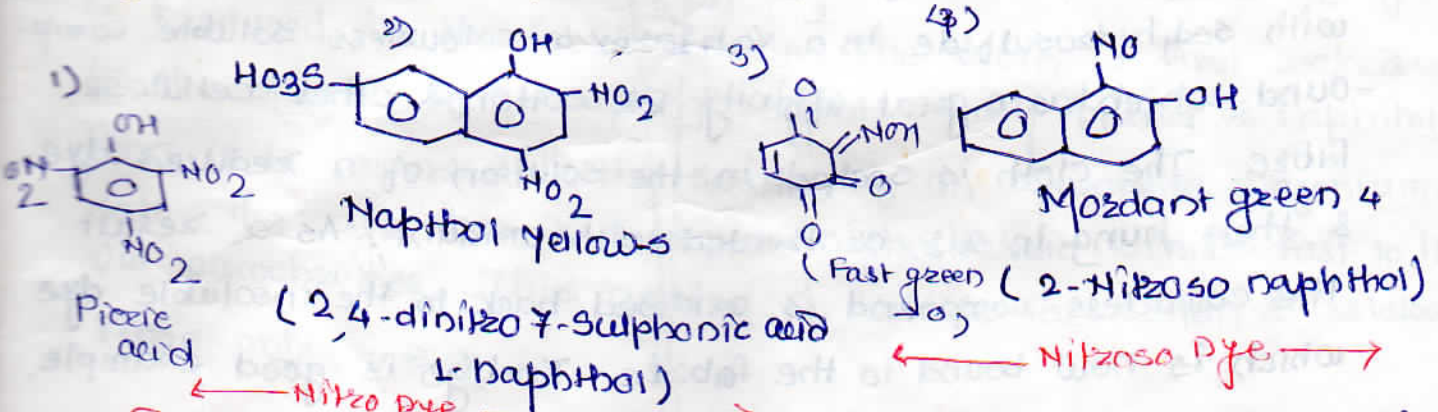 1)
OH
O2N
NO2
NO2
Picric
acid
2)
OH
HO3S
NO2
NO2
Napthol Yellow-s
(2,4-dinitro 7-Sulphonic acid
1-naphthol)
Nitro Dye
3)
O
NOH
O
O
(Fast green
O)
4)
NO
OH
Mordant green 4
(2-Nitroso naphthol)
Nitroso Dye